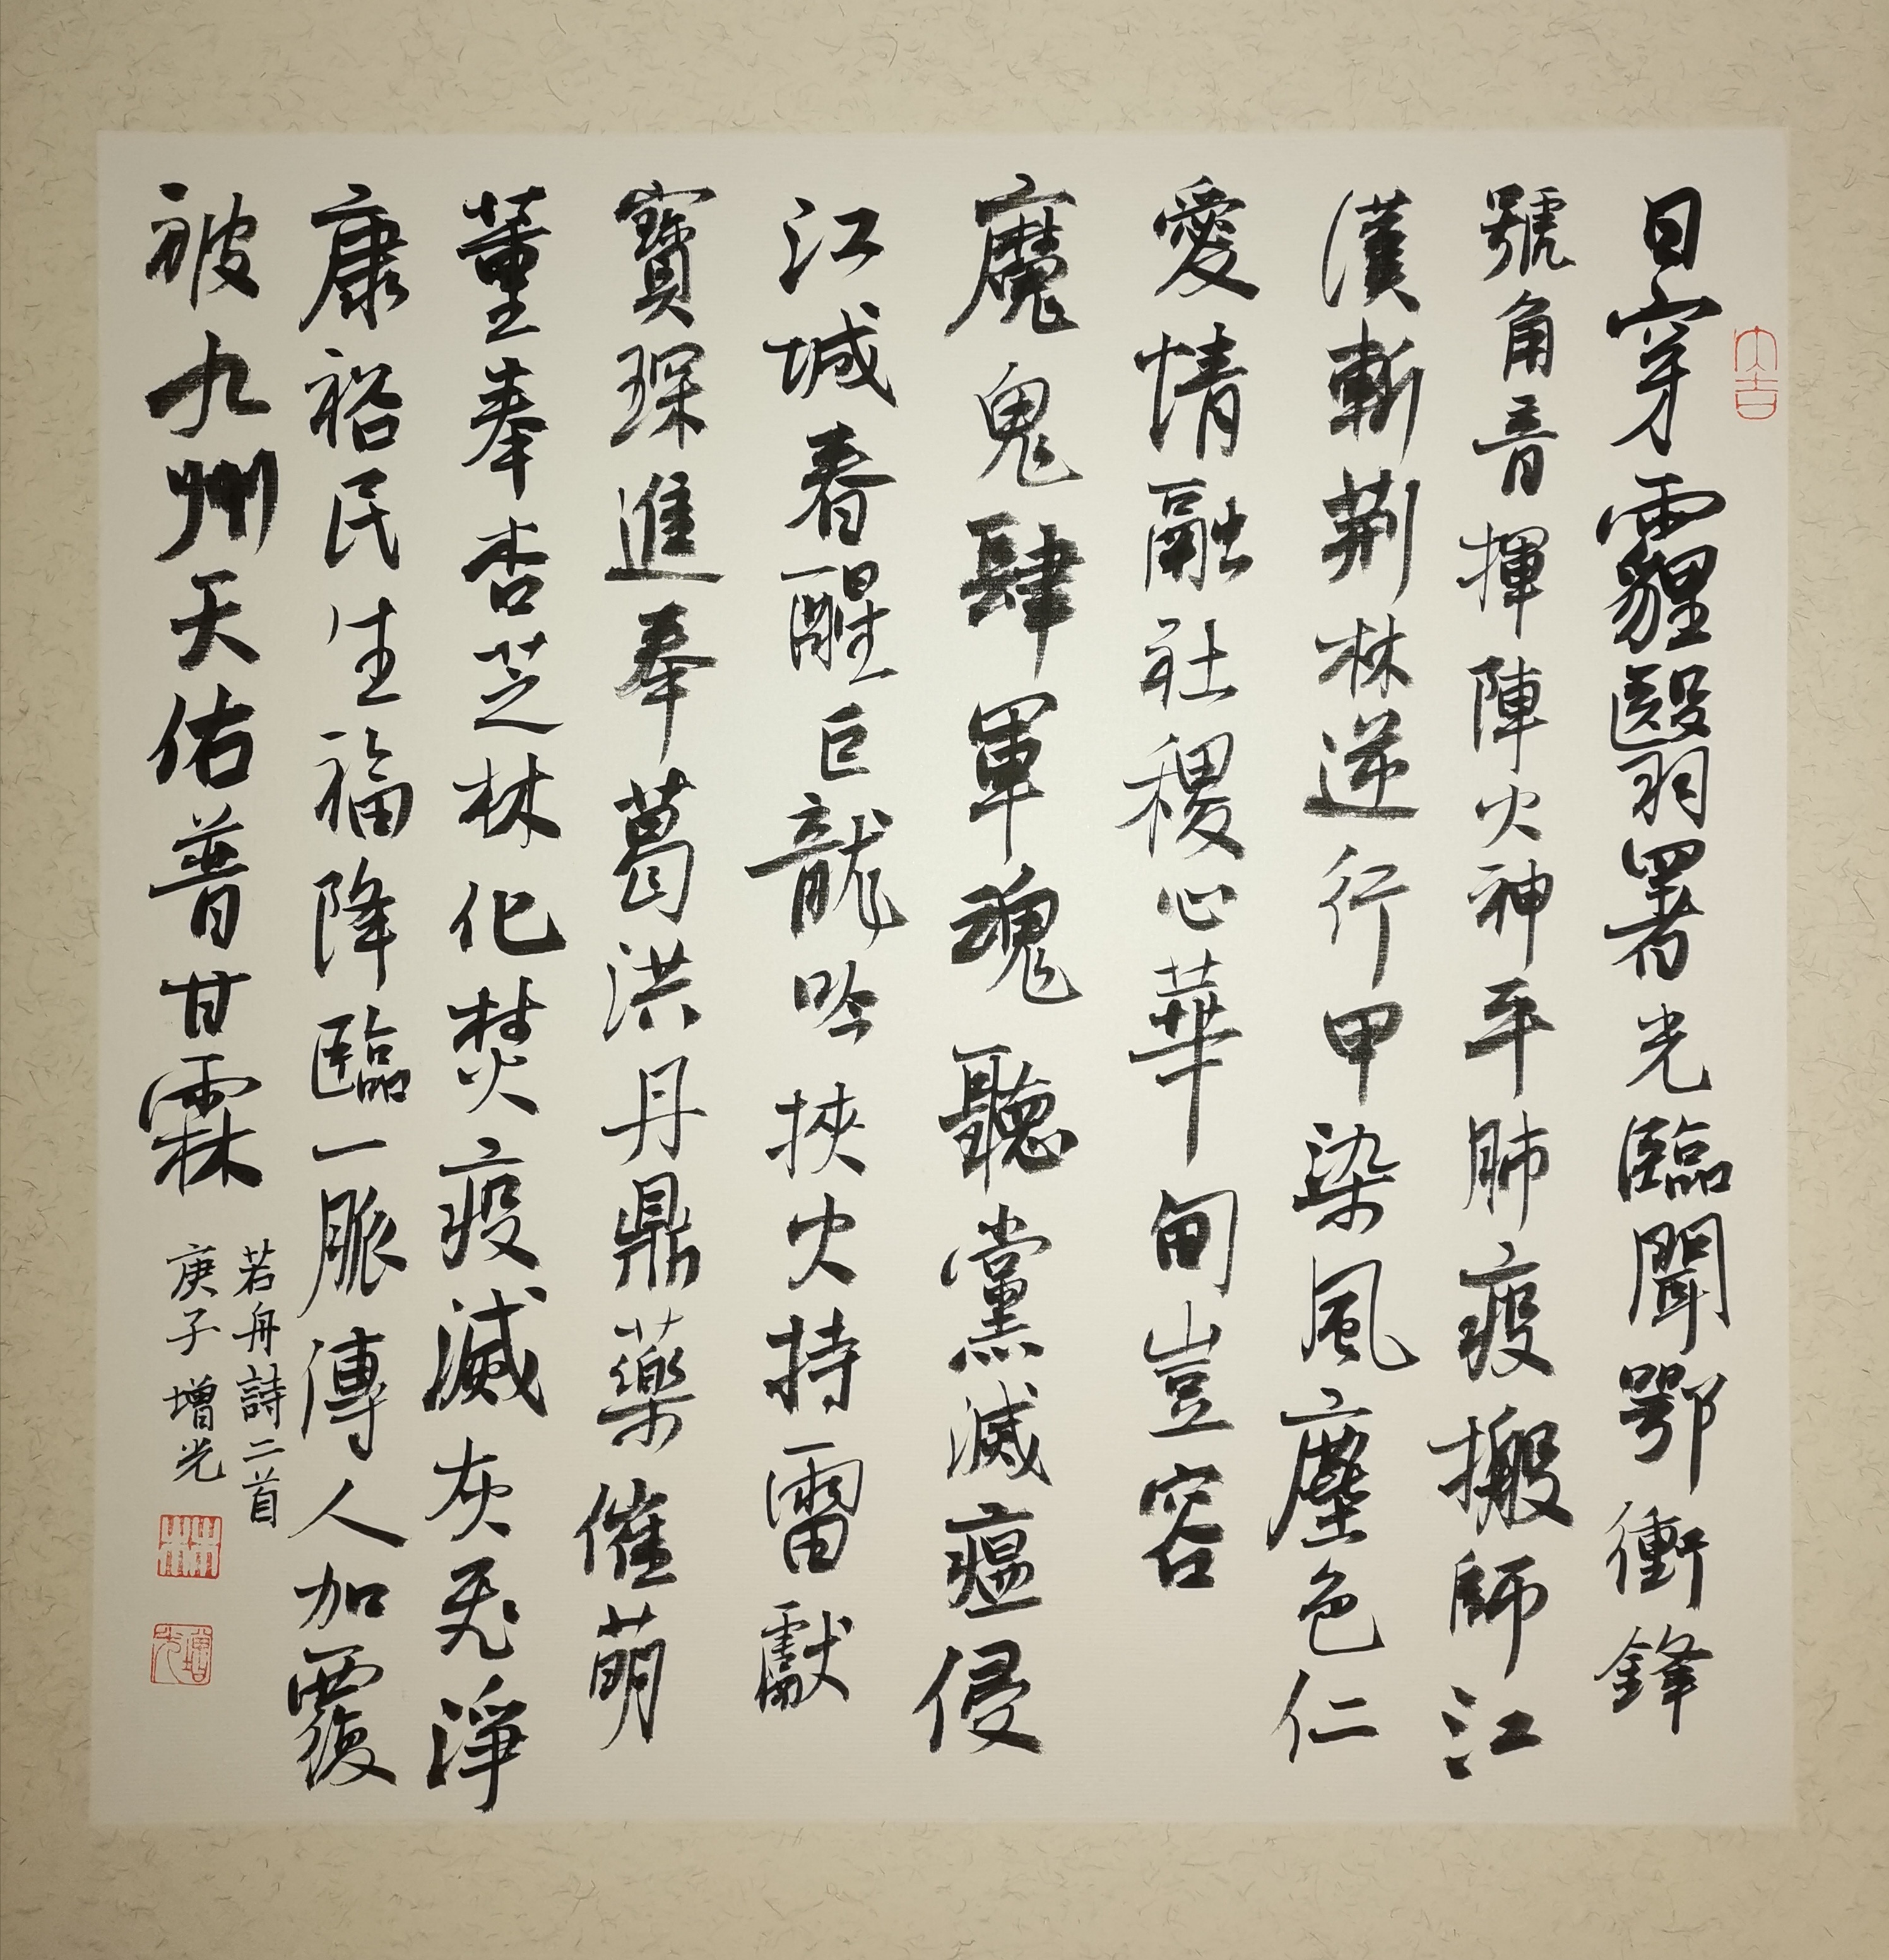 大吉
日穿霾翳署光臨聞鄂衝鋒
號角音揮陣火神平肺疫搬師江
漢斬荆林逆行甲染風塵色仁
愛情融社稷心華甸豈容
魔鬼肆軍魂聽黨滅瘟侵
江城春醒巨龍吟挾火持雷獻
寶琛進奉葛洪丹鼎藥催萌
董奉杏芝林化焚疫滅灰飛淨
康裕民生福降臨一脈傳人加覆
被九州天佑普甘霖
若舟詩二首
庚子增光
林
增光